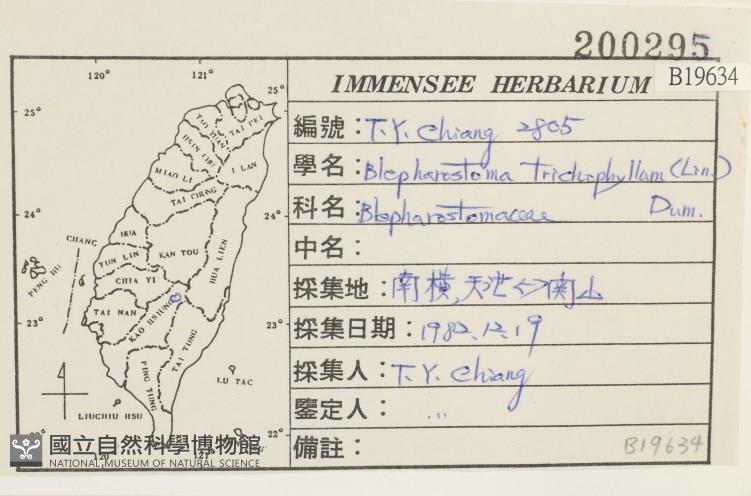 200295
B19634
IMMENSEE HERBARIUM
編號：T.Y. Chiang 2805
學名：Blepharostoma Trichophyllum (Lin.)
科名：Blepharostomaceae Dum.
中名：
採集地：南橫,天池<->関山
採集日期：1982.12.19
採集人：T.Y. Chiang
鑒定人：,,
備註：
B19634
120°
121°
25°
25°
TAO YUAN
TAI PEI
HSIN CHU
I LAN
MIAO LI
TAI CHUNG
24°
24°
CHANG
HUA
YUN LIN
KAN TOU
HUA LIEN
PENG HU
CHIA YI
TAI NAN
KAO HSIUNG
TAI TUNG
23°
23°
PING TUNG
LU TAC
LIUCHIU HSU
22°
120
121°
國立自然科學博物館
NATIONAL MUSEUM OF NATURAL SCIENCE